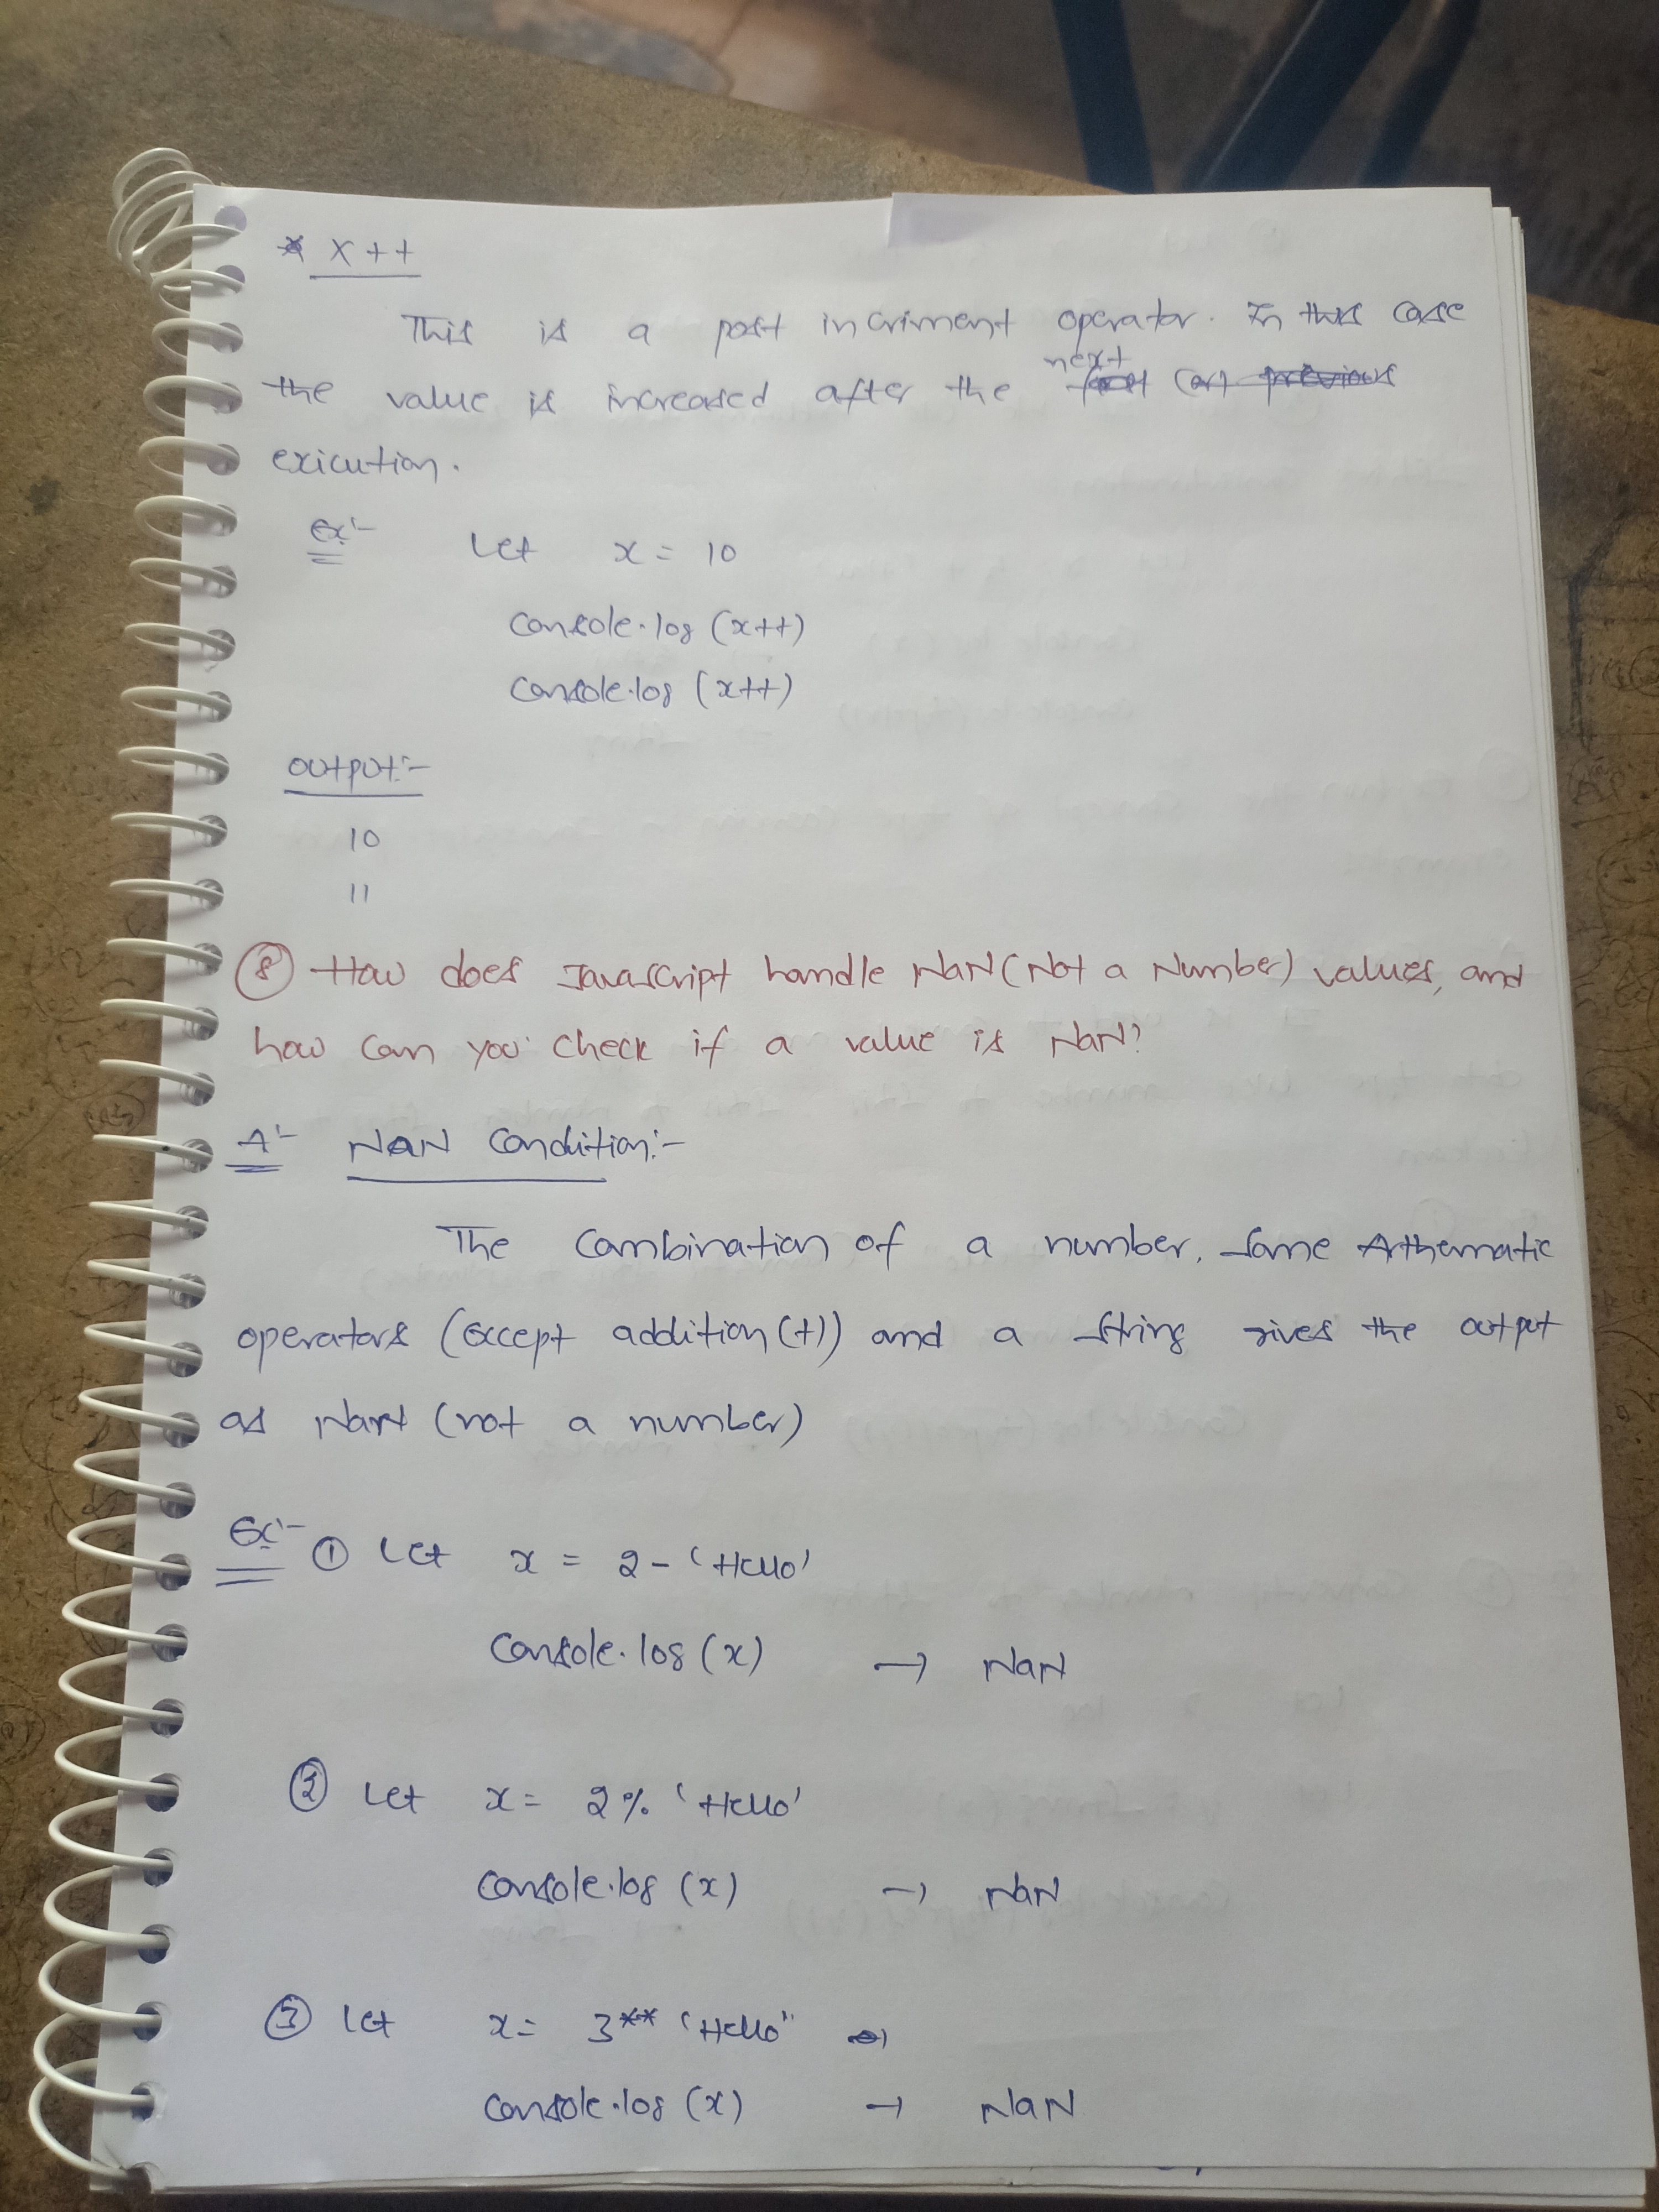 * X++
This is a post incriment operator. In this case
the value is increased after the next (or) previous
exicution.
Ex:-  Let x = 10
console.log (x++)
console.log (x++)
Output:-
10
11
⑧ How does Javascript handle NaN (Not a Number) values, and
how can you check if a value is NaN?
A:- NaN Condition:-
The Combination of a number, some Arthematic
operators (Except addition (+)) and a string gives the output
as NaN (not a number)
Ex:- ① Let x = 2 - 'Hello'
Console.log (x) → NaN
② Let x = 2 % 'Hello'
Console.log (x) → NaN
③ Let x = 3 ** 'Hello"
Console.log (x) → NaN